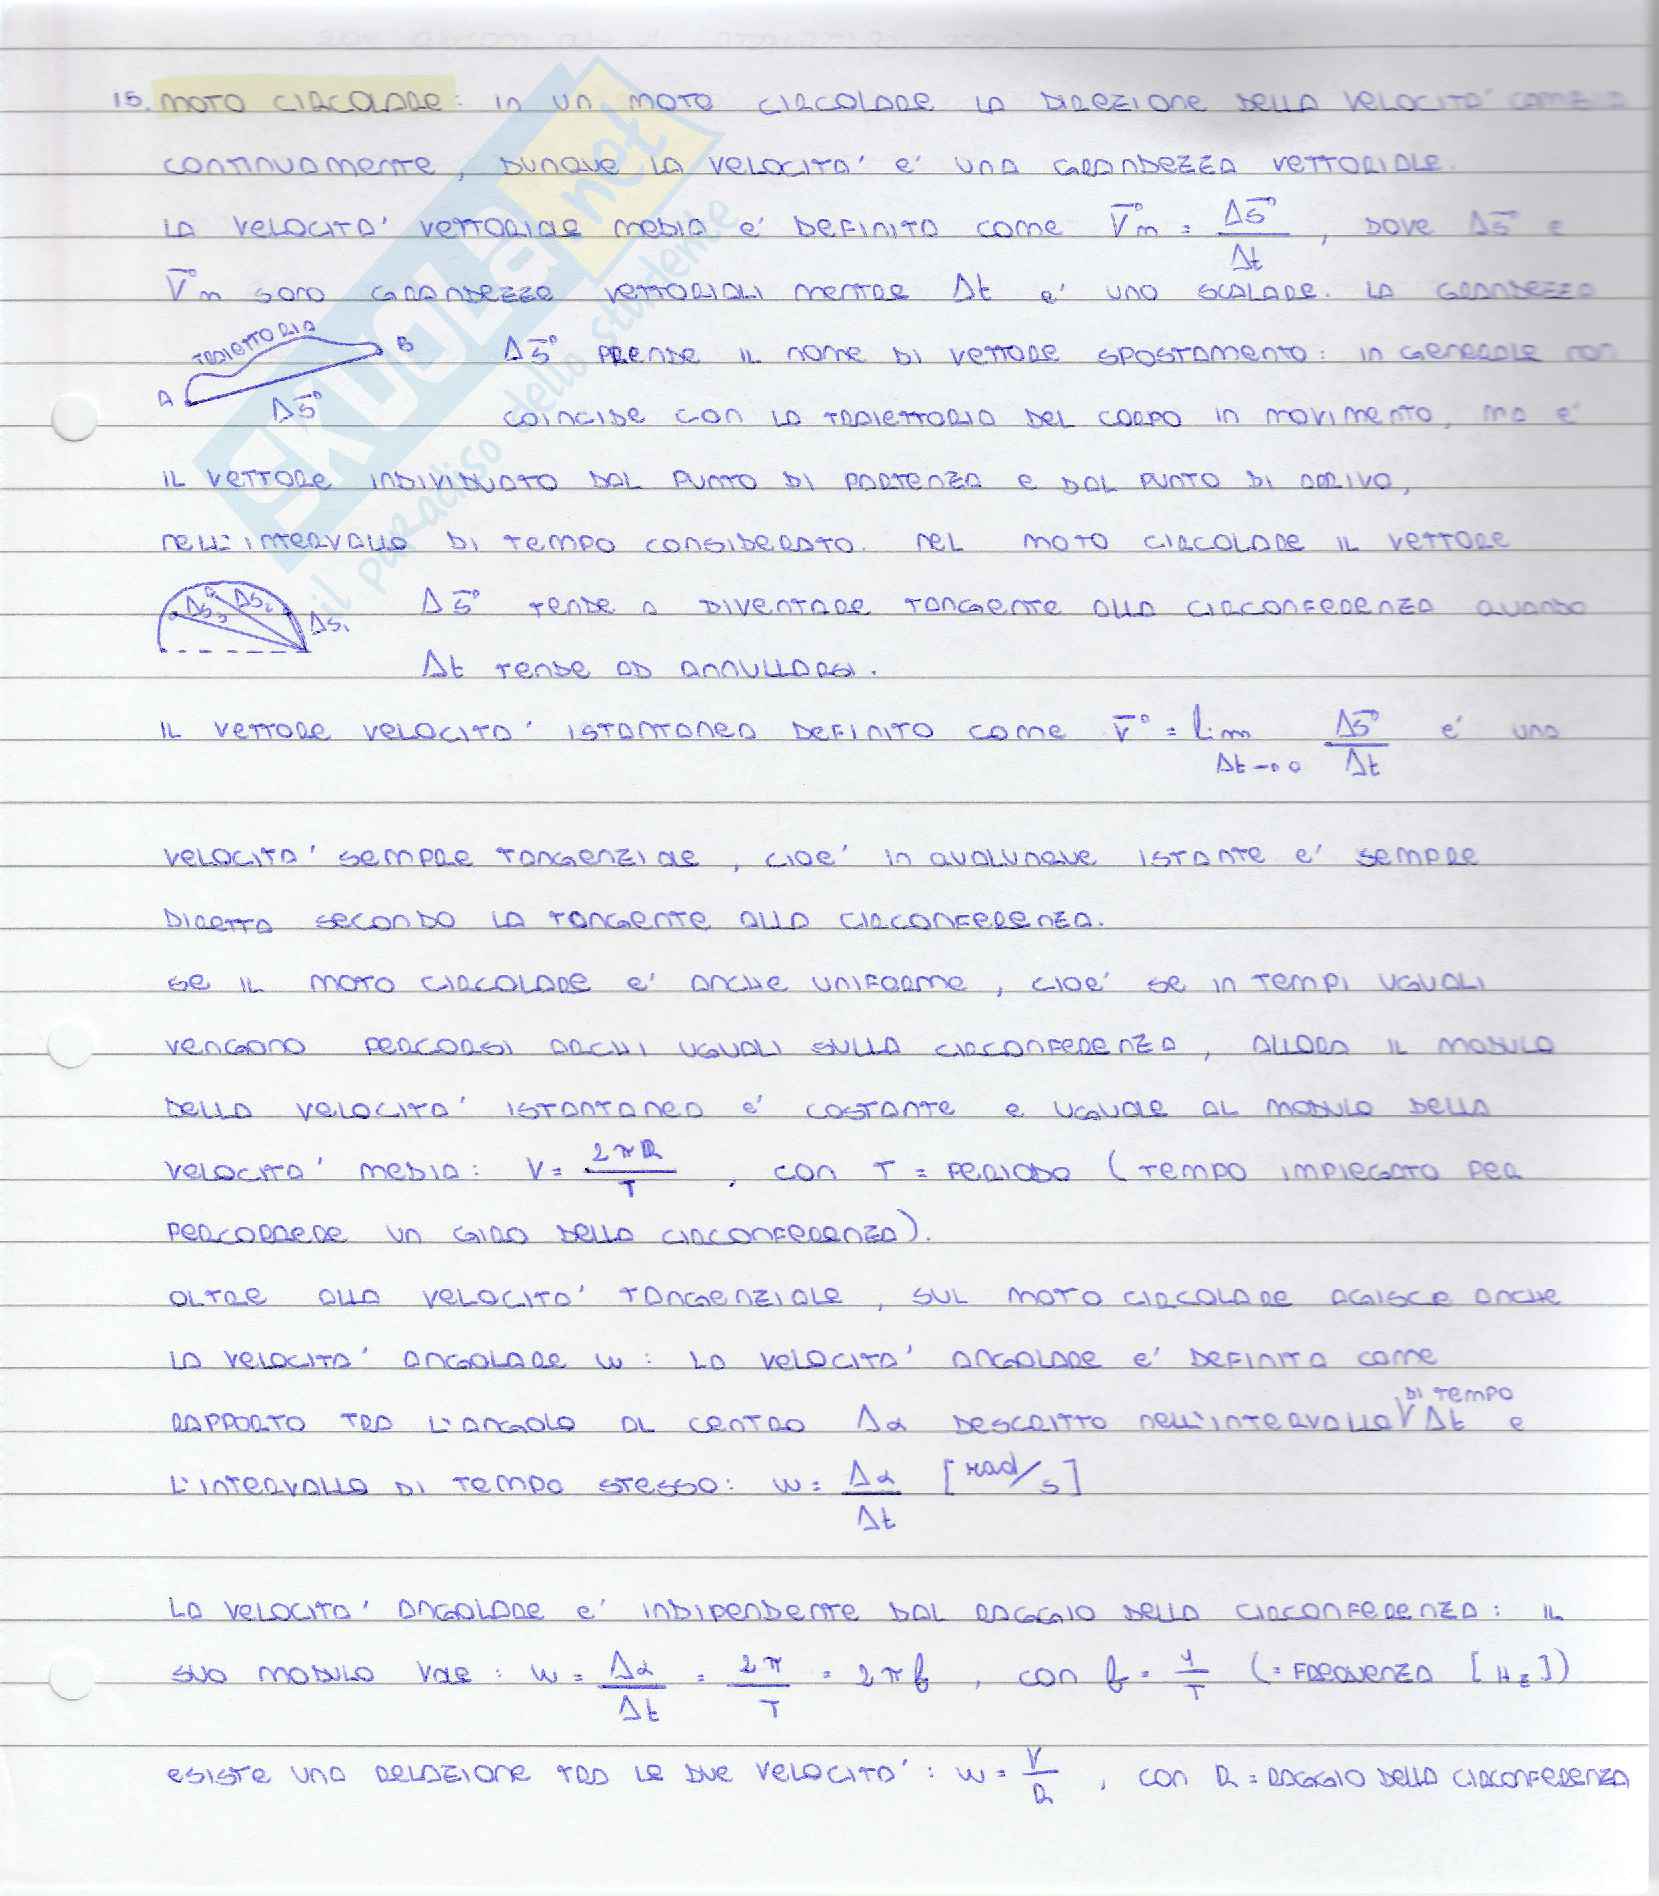 15. MOTO CIRCOLARE: IN UN MOTO CIRCOLARE LA DIREZIONE DELLA VELOCITA' CAMBIA
CONTINUAMENTE, DUNQUE LA VELOCITA' E' UNA GRANDEZZA VETTORIALE.
LA VELOCITA' VETTORIALE MEDIA E' DEFINITA COME V⃗m = ΔS⃗/Δt, DOVE ΔS⃗ E
V⃗m SONO GRANDEZZE VETTORIALI MENTRE Δt E' UNO SCALARE. LA GRANDEZZA
TRAIETTORIA
A B ΔS⃗
ΔS⃗ PRENDE IL NOME DI VETTORE SPOSTAMENTO: IN GENERALE NON
COINCIDE CON LA TRAIETTORIA DEL CORPO IN MOVIMENTO, MA E'
IL VETTORE INDIVIDUATO DAL PUNTO DI PARTENZA E DAL PUNTO DI ARRIVO,
NELL'INTERVALLO DI TEMPO CONSIDERATO. NEL MOTO CIRCOLARE IL VETTORE
ΔS₃ ΔS₂ ΔS₁
ΔS⃗ TENDE A DIVENTARE TANGENTE ALLA CIRCONFERENZA QUANDO
Δt TENDE AD ANNULLARSI.
IL VETTORE VELOCITA' ISTANTANEA DEFINITO COME V⃗ = lim Δt→0 ΔS⃗/Δt E' UNA
VELOCITA' SEMPRE TANGENZIALE, CIOE' IN QUALUNQUE ISTANTE E' SEMPRE
DIRETTA SECONDO LA TANGENTE ALLA CIRCONFERENZA.
SE IL MOTO CIRCOLARE E' ANCHE UNIFORME, CIOE' SE IN TEMPI UGUALI
VENGONO PERCORSI ARCHI UGUALI SULLA CIRCONFERENZA, ALLORA IL MODULO
DELLA VELOCITA' ISTANTANEA E' COSTANTE E UGUALE AL MODULO DELLA
VELOCITA' MEDIA: V = 2πR/T, CON T = PERIODO (TEMPO IMPIEGATO PER
PERCORRERE UN GIRO DELLA CIRCONFERENZA).
OLTRE ALLA VELOCITA' TANGENZIALE, SUL MOTO CIRCOLARE AGISCE ANCHE
LA VELOCITA' ANGOLARE ω: LA VELOCITA' ANGOLARE E' DEFINITA COME
RAPPORTO TRA L'ANGOLO AL CENTRO Δα DESCRITTO NELL'INTERVALLO DI TEMPO Δt E
L'INTERVALLO DI TEMPO STESSO: ω = Δα/Δt [rad/s]
LA VELOCITA' ANGOLARE E' INDIPENDENTE DAL RAGGIO DELLA CIRCONFERENZA: IL
SUO MODULO VALE: ω = Δα/Δt = 2π/T = 2πf, CON f = 1/T (= FREQUENZA [Hz])
ESISTE UNA RELAZIONE TRA LE DUE VELOCITA': ω = V/R, CON R = RAGGIO DELLA CIRCONFERENZA
SKUOLA.net
il paradiso dello studente